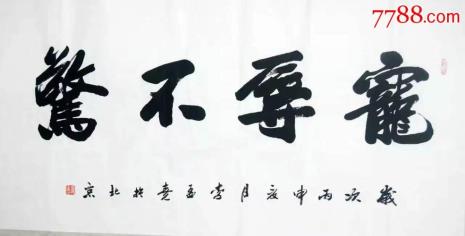 7788.com
寵辱不驚
歲次丙申夏月李於北京